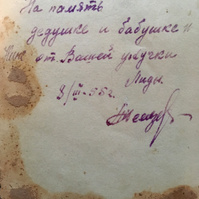 На память
дедушке и бабушке и
от Вашей внучки
Лиды.
8/III-55г.